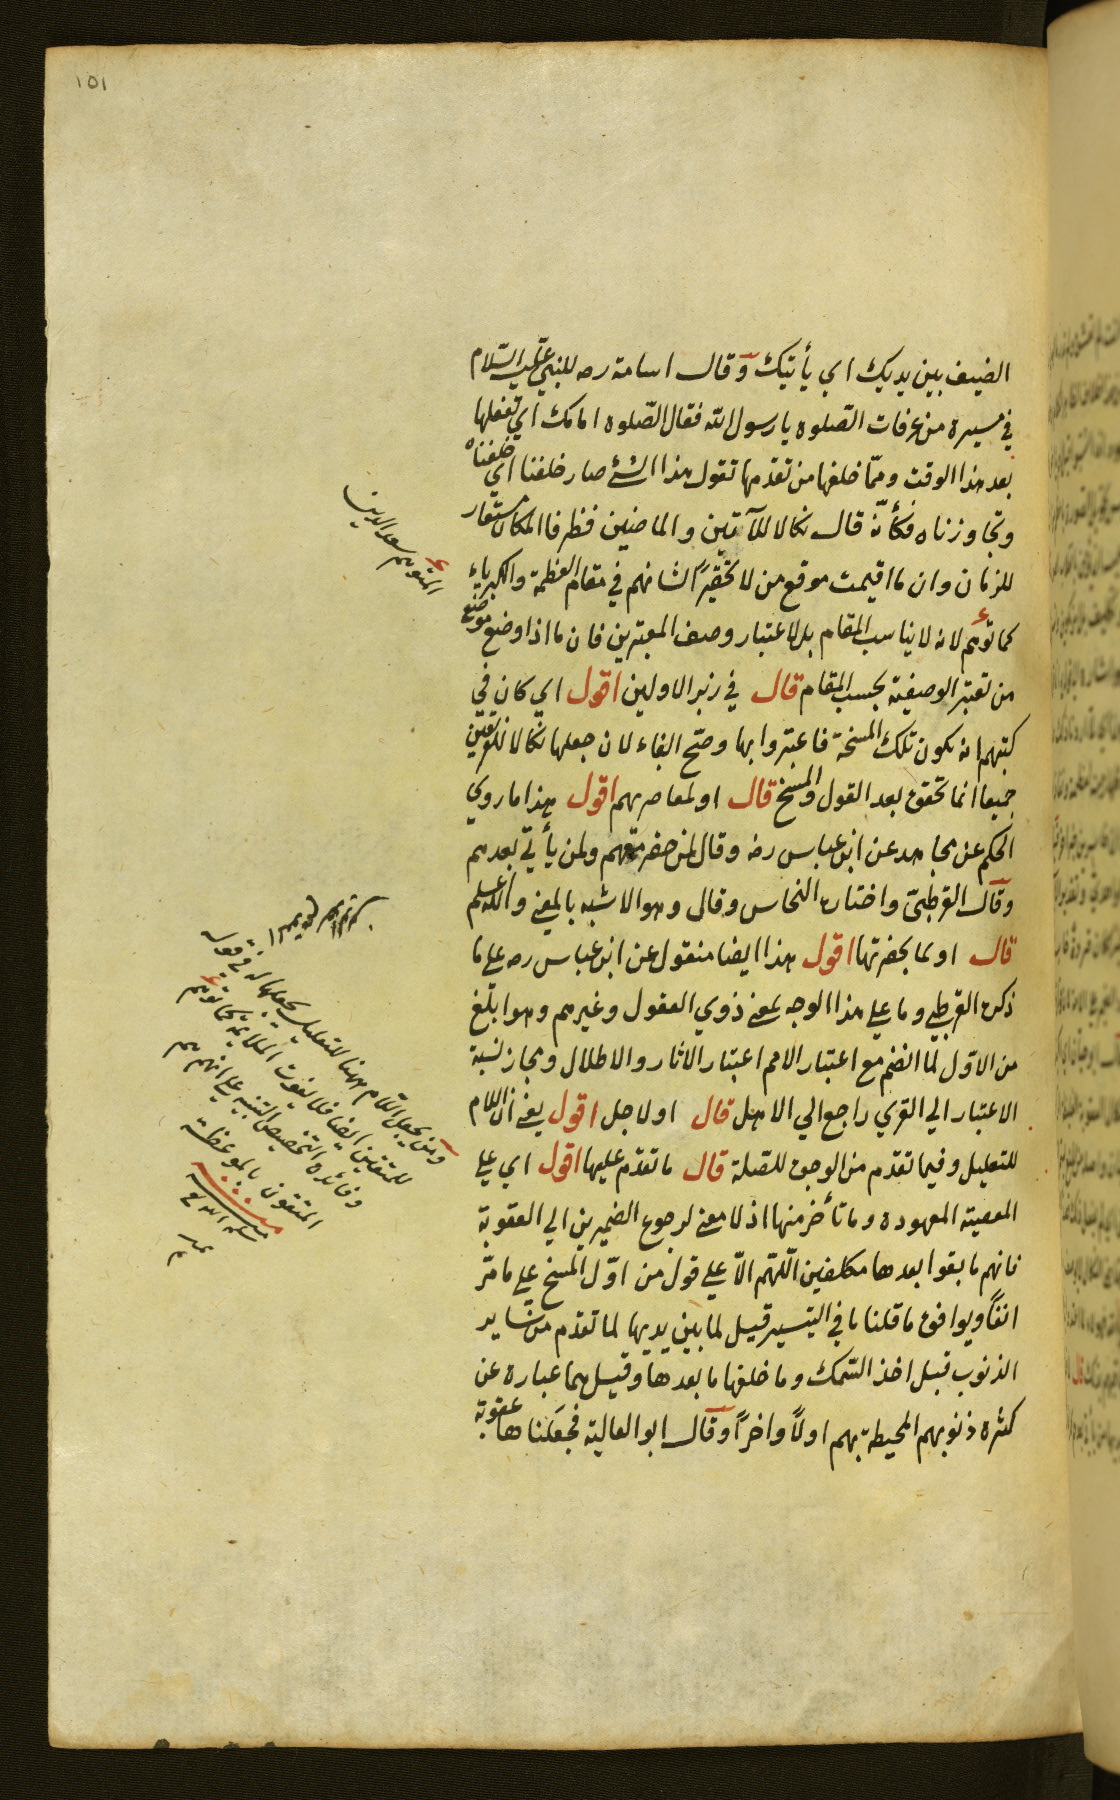 ١٥١
الضيف بين يديك اي يأتيك وقال اسامة رضه للنبي عليه السّلام
في مسيره من عرفات الصّلوه يا رسول الله فقال الصّلوه امامك اي تفعلها
بعد هذا الوقت وممّا خلفها من تقدمها تقول هذا الشئ صار خلفنا اي خلفناه
وتجاوزناه فكأنّه قال نكالا للآتين والماضين فظرفا المكان مستعار
للزمان وان ما اقيمت موقع من لا تحقيرًا لشانهم في مقام العظمة والكبرياء
كما توهم لانه لا يناسب المقام بل لاعتبار وصف المعتبرين فان ما اذا وضع موضع
من تعتبر الوصفية بحسب المقام قال في زبر الاولين اقول اي كان في
كتبهم انه تكون تلك المسخة فاعتبروا بها وصحّ الفاء لان جعلها نكالا للفريقين
جميعا انما تحقق بعد القول والمسخ قال او لمعاصريهم اقول هذا ما روي
الحكم عن مجاهد عن ابن عباس رضه وقال لمن حضر معهم ولمن يأتي بعدهم
وقال القرطبيّ واختاره النحاس وقال وهو الاشبه بالمعنى والله اعلم
قال او لما بحضرتها اقول هذا ايضا منقول عن ابن عباس رضه على ما
ذكره القرطبي وما على هذا الوجه بمعنى ذوي العقول وغيرهم وهو ابلغ
من الاوّل لما انضم مع اعتبار الامم اعتبار الاثار والاطلال ومجاز نسبة
الاعتبار الي القري راجع الي الاهل قال او لاجل اقول يعني انّ اللام
للتعليل وفيما تقدم من الوجوه للصلة قال ما تقدّم عليها اقول اي على
المعصية المعهودة وما تأخر منها اذ لا معنى لرجوع الضميرين الي العقوبة
فانهم ما بقوا بعدها مكلفين اللّهمّ الاّ على قول من اوّل المسخ على ما مرّ
انفًا ويوافق ما قلنا ما في التيسير قيل لما بين يديها لما تقدم من
الذنوب قبل اخذ السّمك وما خلفها ما بعدها وقيل هما عبارة عن
كثرة ذنوبهم المحيطة بهم اولاً واخراً وقال ابو العالية فجعلناها عقوبة
المتوهم سعد الدين
ومن يجعل اللام ههنا للتعليل يجعلها له في قوله
للمتقين ايضا فلا يفوت الملايمة كما توهم
وفائدة التخصيص التنبيه على انهم هم
المتقون بالموعظة
منه